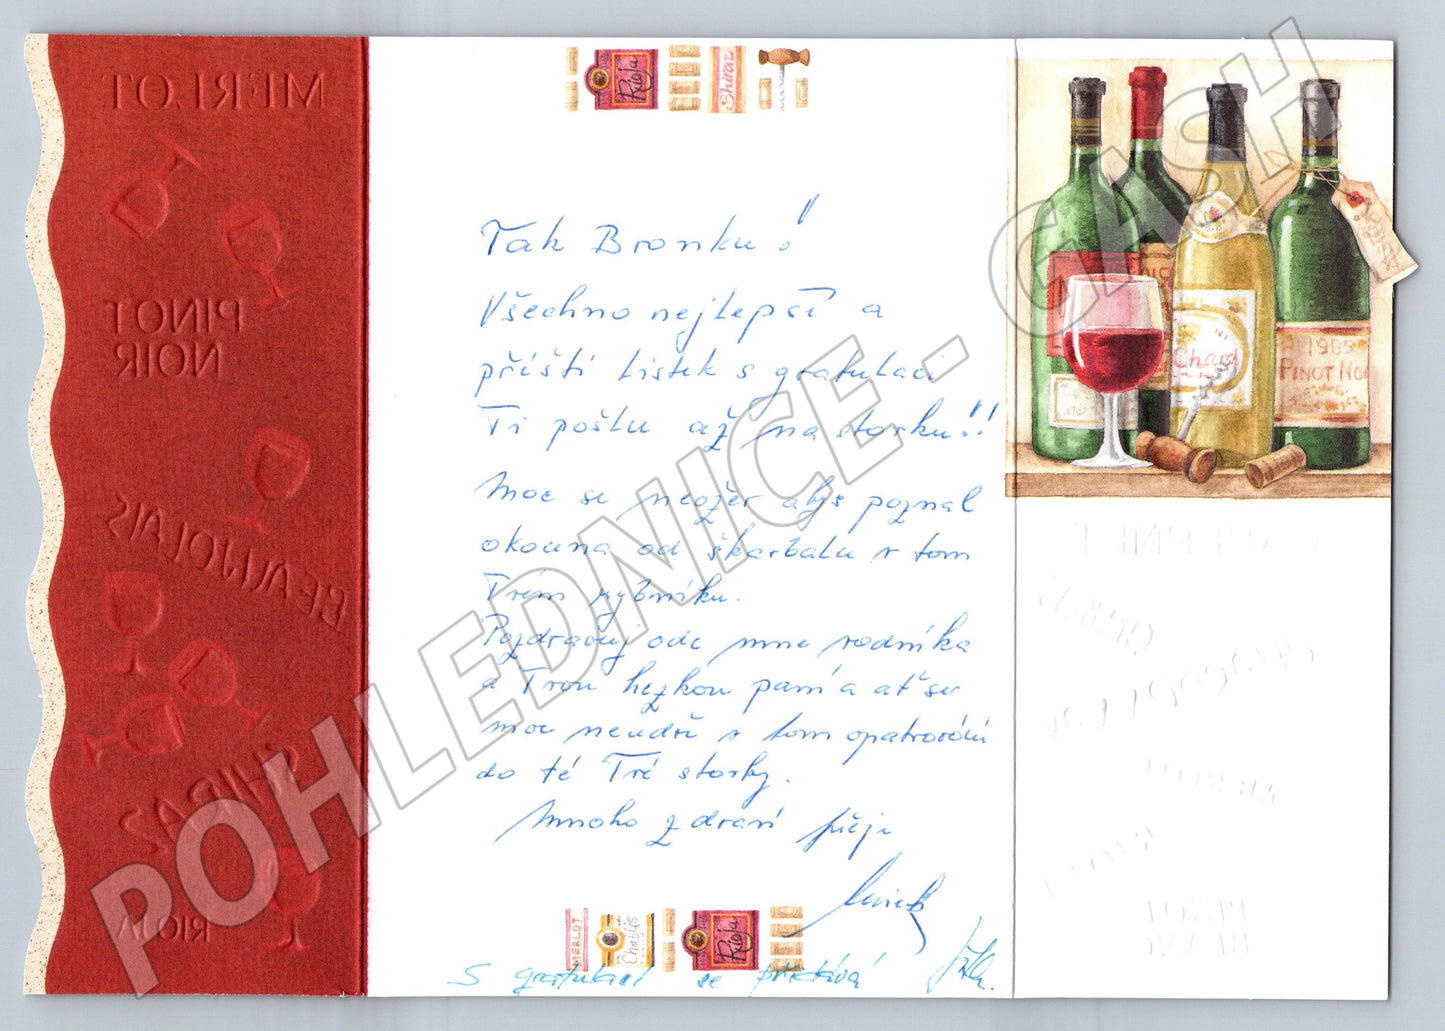 MERLOT
PINOT
NOIR
BEAUJOLAIS
SHIRAZ
RIOJA
Rioja
Shiraz
Tak Bronku!
Všechno nejlepší a
příští lístek s gratulací
Ti pošlu až na stovku!!
Moc se neožer abys poznal
okouna od škarbala v tom
Tvém rybníku.
Pozdravuj ode mne rodníka
a Tvou hezkou paní a ať se
moc neudře s tom opatrování
do té Tvé stovky.
Mnoho zdraví přeje
MERLOT
Chablis
Rioja
S gratulací se přidává
Chard
1985
PINOT NOI
PINOT
POHLEDNICE - CASH